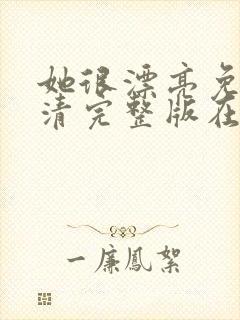 她很漂亮免
清完整版在
一廉鳳絮